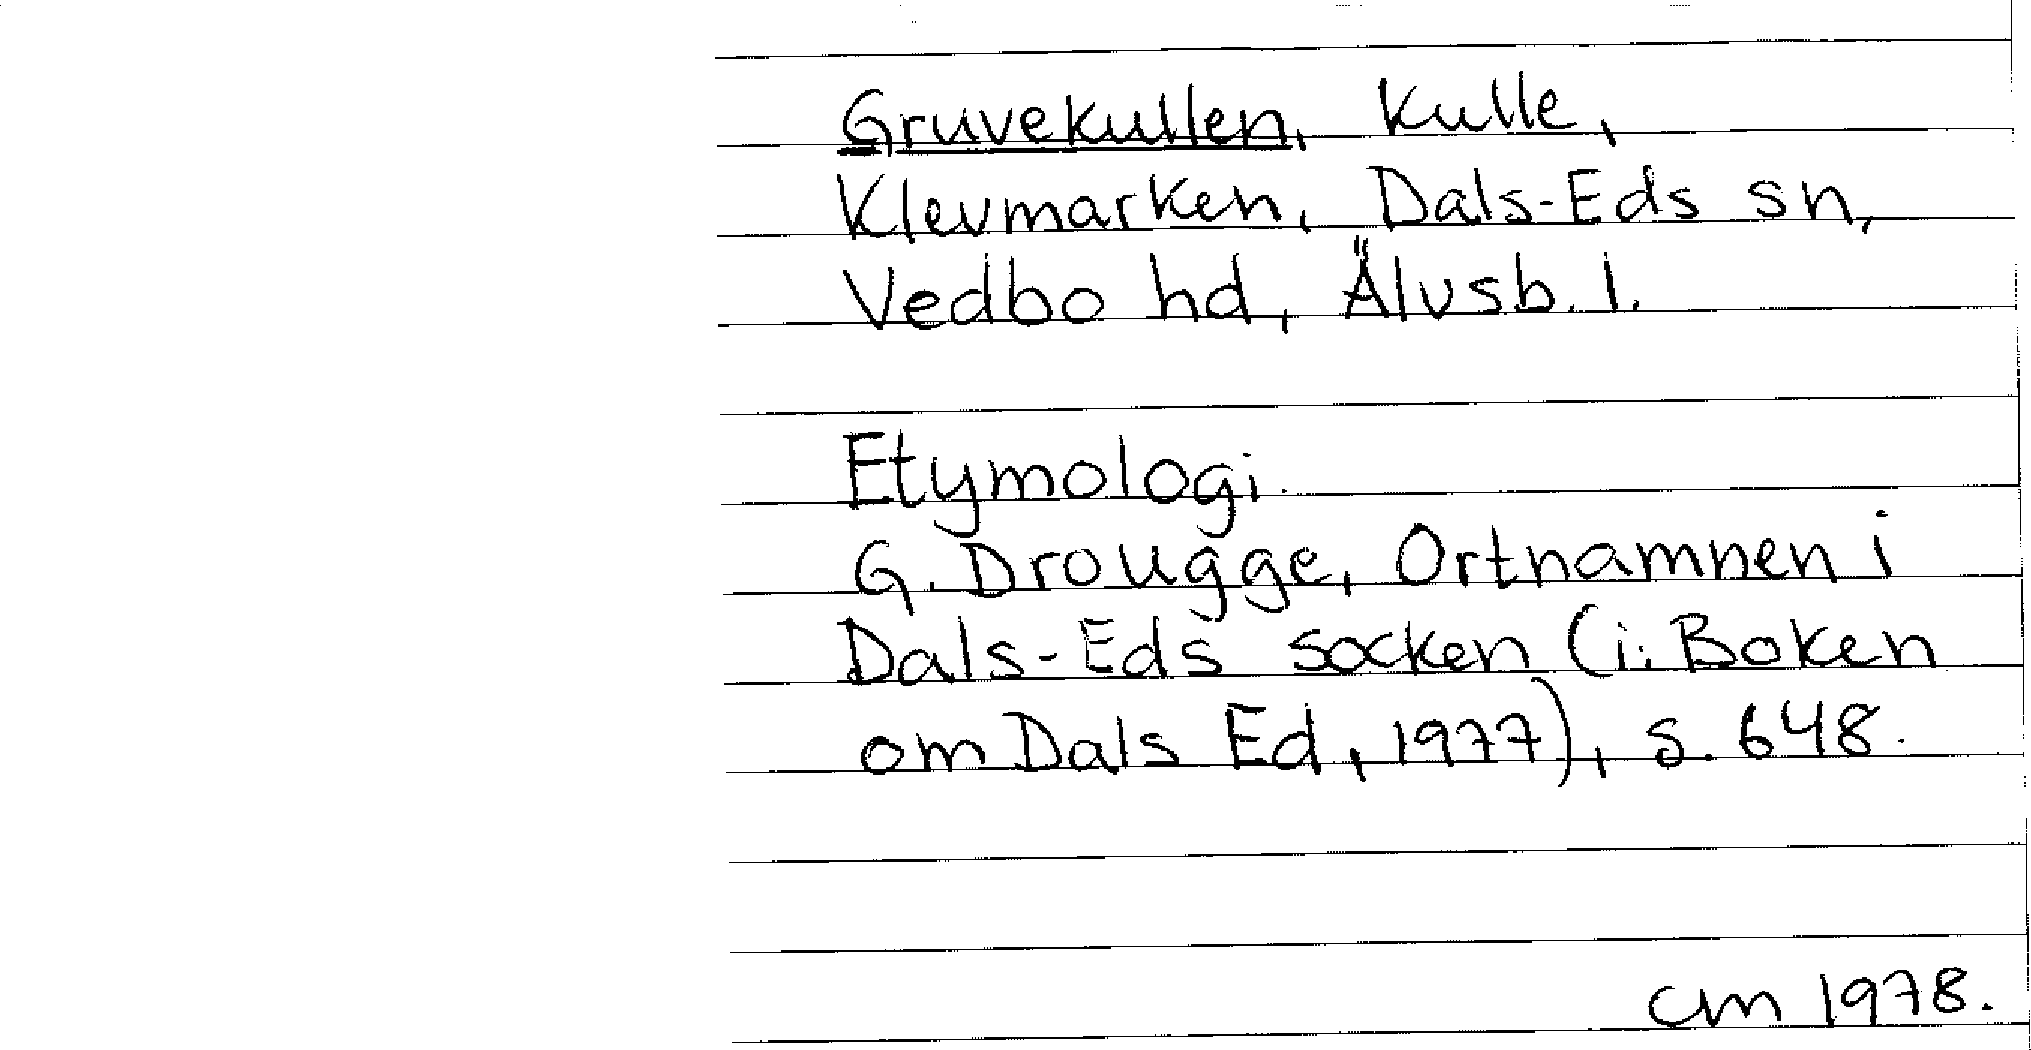 Gruvekullen, kulle,
Klevmarken, Dals-Eds sn,
Vedbo hd, Älvsb. l.
Etymologi.
G. Drougge, Ortnamnen i
Dals-Eds socken (i: Boken
om Dals Ed, 1977), s. 648.
cm 1978.